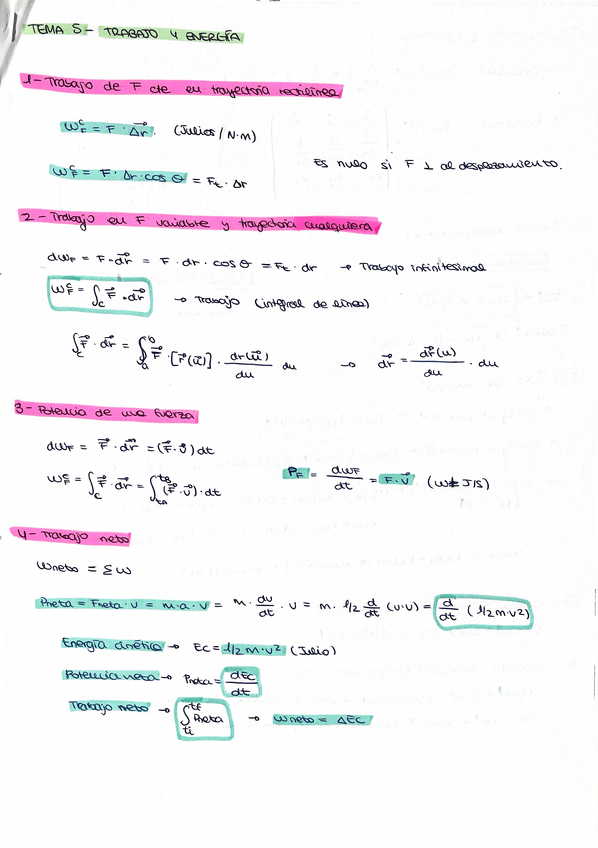 TEMA 5 - TRABAJO Y ENERGÍA
1 - Trabajo de F cte en trayectoria rectilínea
W_F^C = F · Δr⃗. (Julios / N·m)
Es nulo si F ⊥ al desplazamiento.
W_F^C = F · Δr · cos θ = Ft · Δr
2 - Trabajo en F variable y trayectoria cualquiera
dW_F = F · dr⃗ = F · dr · cos θ = Ft · dr → Trabajo infinitesimal
W_F^C = ∫_C F⃗ · dr⃗ → Trabajo (integral de línea)
∫_C F⃗ · dr⃗ = ∫_a^b F⃗ · [r⃗(u⃗)] · dr(u⃗)/du du → dr⃗ = dr⃗(u)/du · du
3 - Potencia de una fuerza
dW_F = F⃗ · dr⃗ = (F⃗ · v⃗) dt
W_F^C = ∫_C F⃗ · dr⃗ = ∫_tA^tB (F⃗ · v⃗) · dt
P_F = dW_F/dt = F · v⃗ (W = J/S)
4 - Trabajo neto
Wneto = Σ W
Pneta = Fneta · v = m · a · v = m · dv/dt · v = m · 1/2 d/dt (v·v) = d/dt (1/2 m·v²)
Energía cinética → Ec = 1/2 m·v² (Julio)
Potencia neta → Pneta = dEc/dt
Trabajo neto → ∫_ti^tf Pneta → Wneto = ΔEC